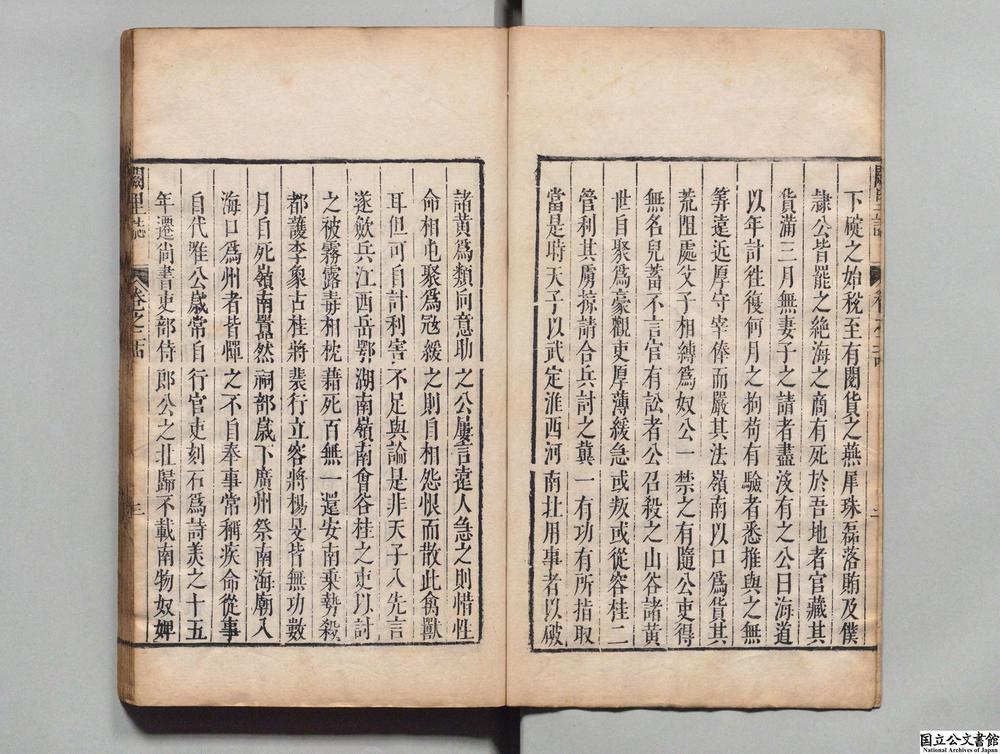 下碇之始稅至有閱貨之燕犀珠磊落賄及僕
隷公皆罷之絶海之商有死於吾地者官藏其
貨滿三月無妻子之請者盡沒有之公曰海道
以年計徃復何月之拘苟有驗者悉推與之無
筭遠近厚守宰俸而嚴其法嶺南以口爲貨其
荒阻處父子相縛爲奴公一禁之有隨公吏得
無名兒蓄不言官有訟者公召殺之山谷諸黄
世自聚爲豪觀吏厚薄緩急或叛或從容桂二
管利其虜掠請合兵討之冀一有功有所指取
當是時天子以武定淮西河南北用事者以破
諸黄爲類同意助之公屢言遠人急之則惜性
命相屯聚爲冦緩之則自相怨恨而散此禽獸
耳但可自計利害不足與論是非天子入先言
遂歛兵江西岳鄂湖南嶺南會谷桂之吏以討
之被霧露毒相枕藉死百無一還安南乗勢殺
都護李象古桂將裴行立容將楊旻皆無功數
月自死嶺南囂然祠部歲下廣州祭南海廟入
海口爲州者皆憚之不自奉事常稱疾命從事
自代唯公歲常自行官吏刻石爲詩美之十五
年遷尚書吏部侍郎公之北歸不載南物奴婢
闕里誌 卷之 三
国立公文書館
National Archives of Japan